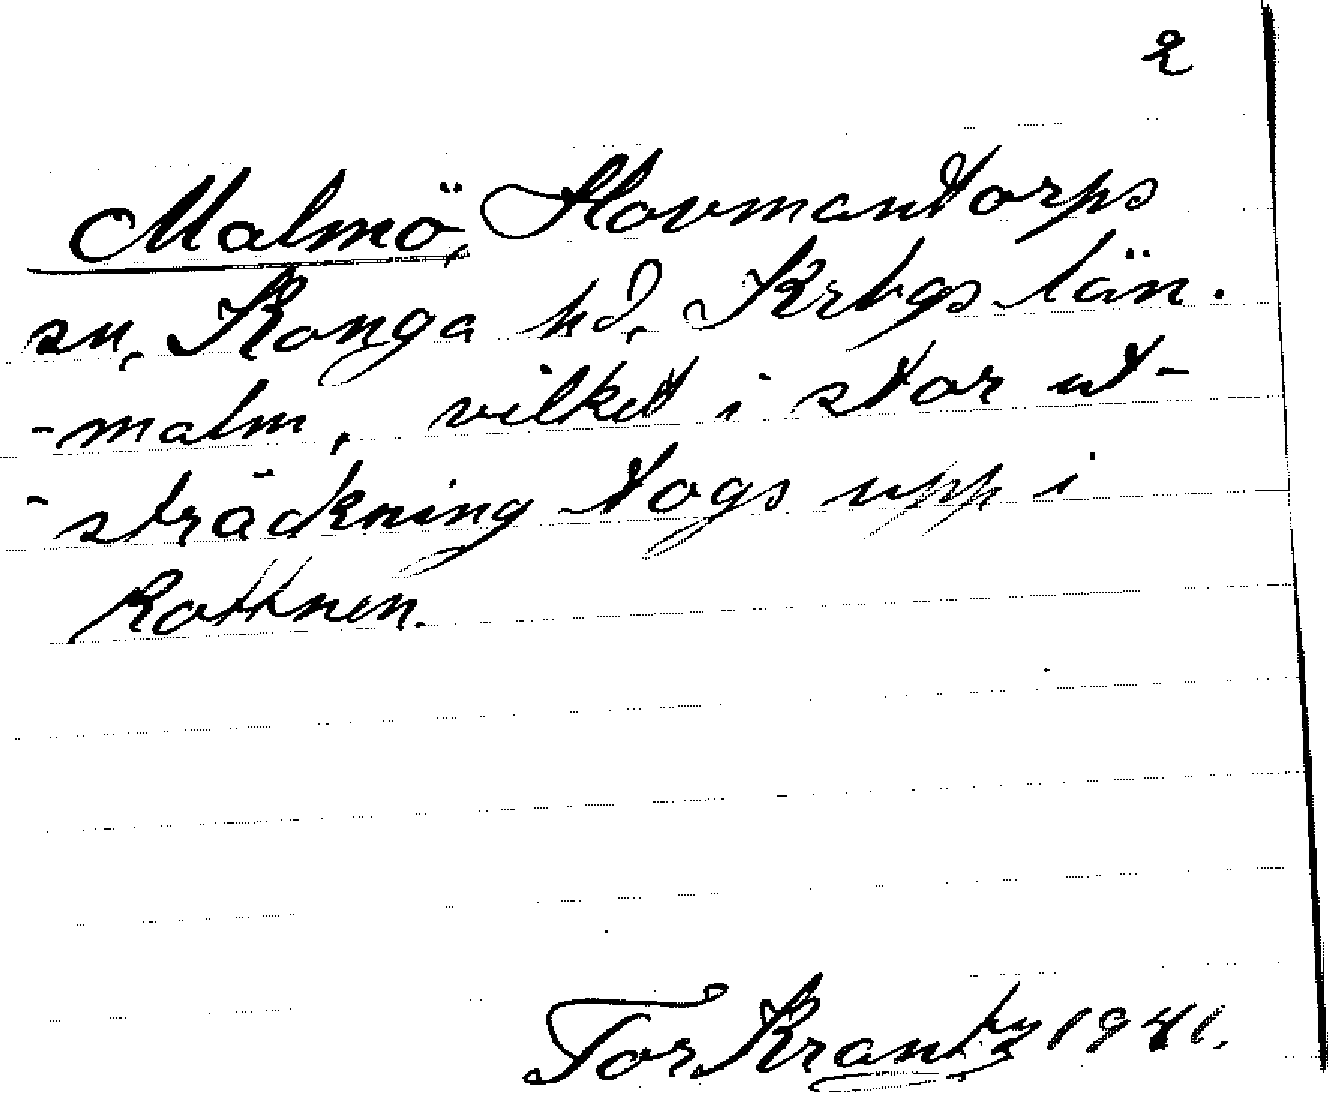 2
Malmö, Hovmantorps
sn, Konga hd, Krbgs län.
-malm, vilket i stor ut-
-sträckning togs upp i
Rottnen.
Tor Krantz 1941.